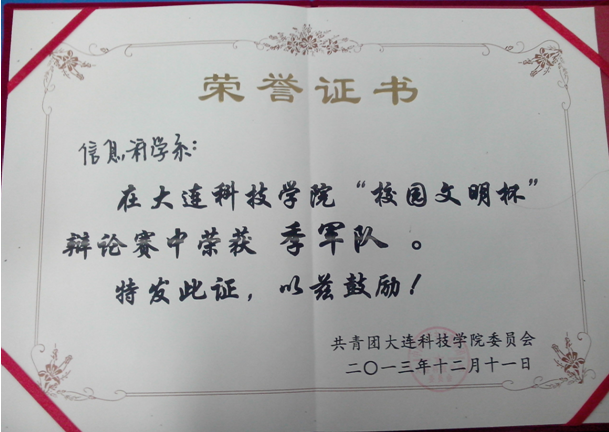 荣誉证书
信息科学系：
在大连科技学院“校园文明杯”
辩论赛中荣获 季军队 。
特发此证，以兹鼓励！
共青团大连科技学院委员会
二〇一三年十二月十一日